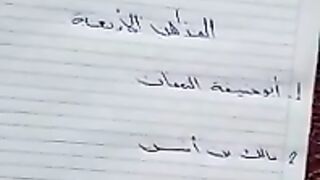 المذاهب الأربعة
1. أبو حنيفة النعمان
2 مالك بن أنس